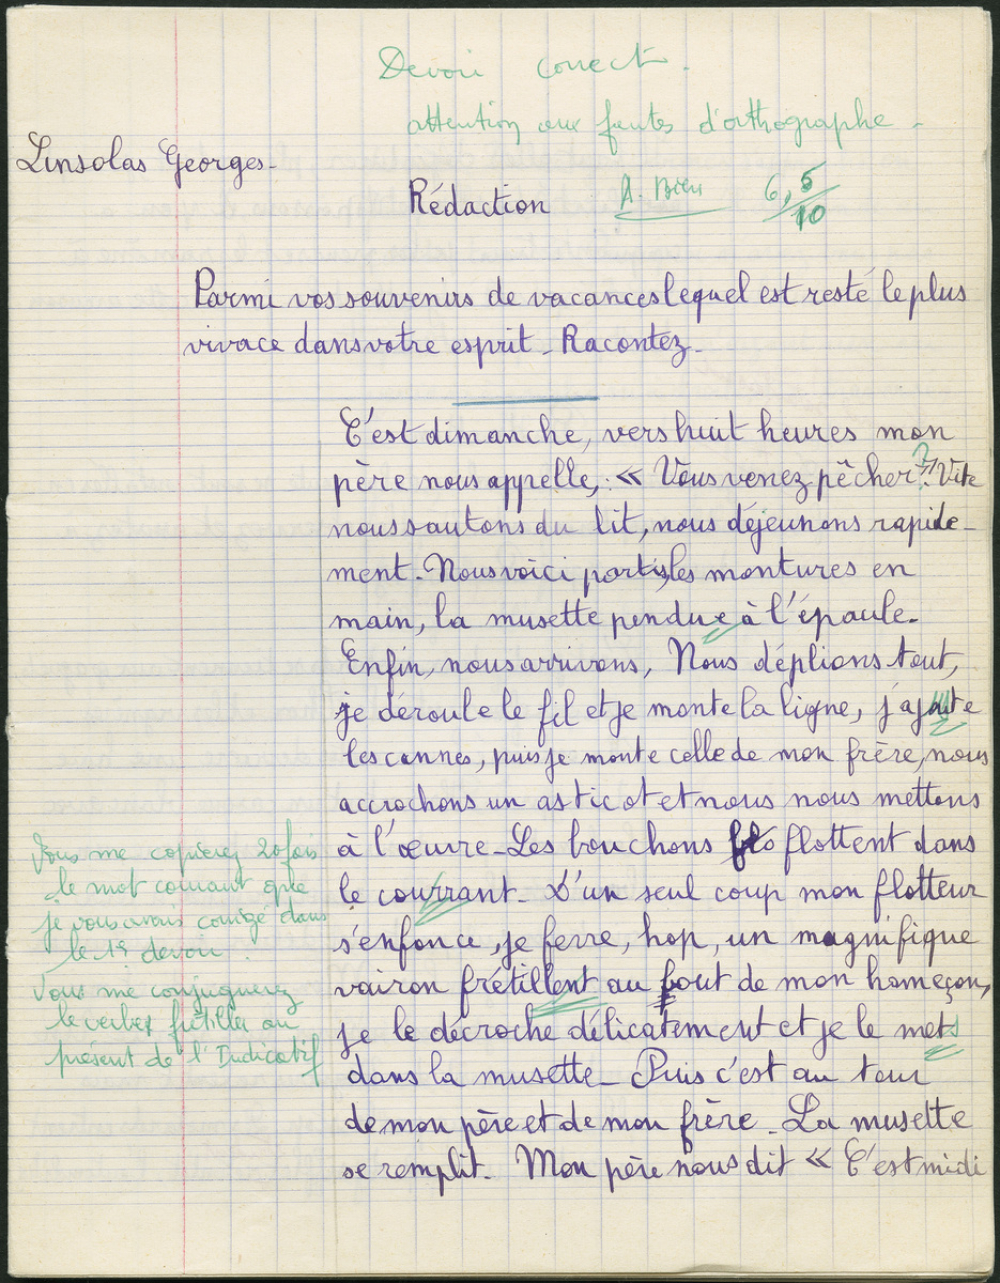 Devoir correct.
attention aux fautes d'orthographe.
Linsolas Georges.
Rédaction
A. Bien
6,5/10
Parmi vos souvenirs de vacances lequel est resté le plus
vivace dans votre esprit. Racontez.
C'est dimanche, vers huit heures mon
père nous appelle, : « Vous venez pêcher ? » Vite
nous sautons du lit, nous déjeunons rapide-
ment. Nous voici partis, les montures en
main, la musette pendue à l'épaule.
Enfin, nous arrivons, Nous déplions tout,
je déroule le fil et je monte la ligne, j'ajuste
les cannes, puis je monte celle de mon frère, nous
accrochons un asticot et nous nous mettons
à l'œuvre. Les bouchons flottent dans
le courrant. D'un seul coup mon flotteur
s'enfonce, je ferre, hop, un magnifique
vairon frétillent au bout de mon hameçon,
je le décroche délicatement et je le mets
dans la musette. Puis c'est au tour
de mon père et de mon frère. La musette
se remplit. Mon père nous dit « C'est midi
Vous me copierez 20 fois
le mot courant que
je vous avais corrigé dans
le 1er devoir.
Vous me conjuguerez
le verbe frétiller au
présent de l'Indicatif